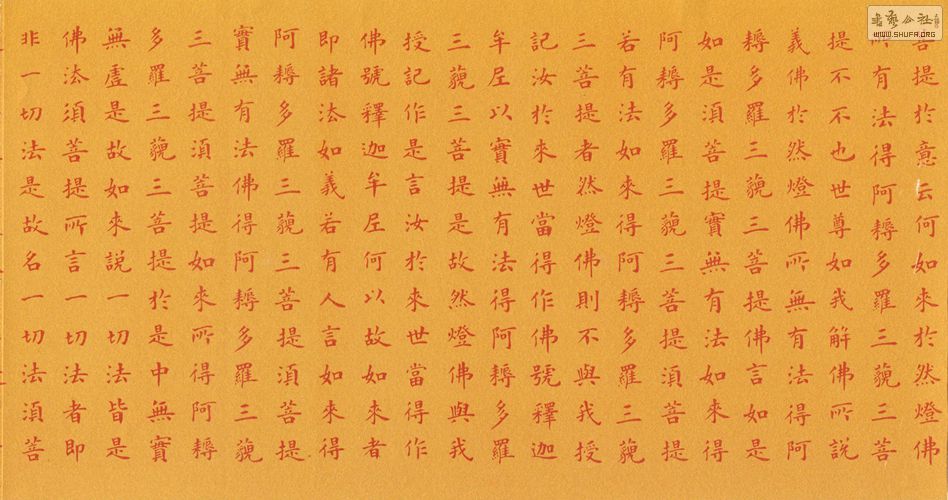 菩提於意云何如來於然燈佛
所有法得阿耨多羅三藐三菩
提不不也世尊如我解佛所說
義佛於然燈佛所無有法得阿
耨多羅三藐三菩提佛言如是
如是須菩提實無有法如來得
阿耨多羅三藐三菩提須菩提
若有法如來得阿耨多羅三藐
三菩提者然燈佛則不與我授
記汝於來世當得作佛號釋迦
牟尼以實無有法得阿耨多羅
三藐三菩提是故然燈佛與我
授記作是言汝於來世當得作
佛號釋迦牟尼何以故如來者
即諸法如義若有人言如來得
阿耨多羅三藐三菩提須菩提
實無有法佛得阿耨多羅三藐
三菩提須菩提如來所得阿耨
多羅三藐三菩提於是中無實
無虛是故如來說一切法皆是
佛法須菩提所言一切法者即
非一切法是故名一切法須菩
書藝公社
WWW.SHUFA.ORG